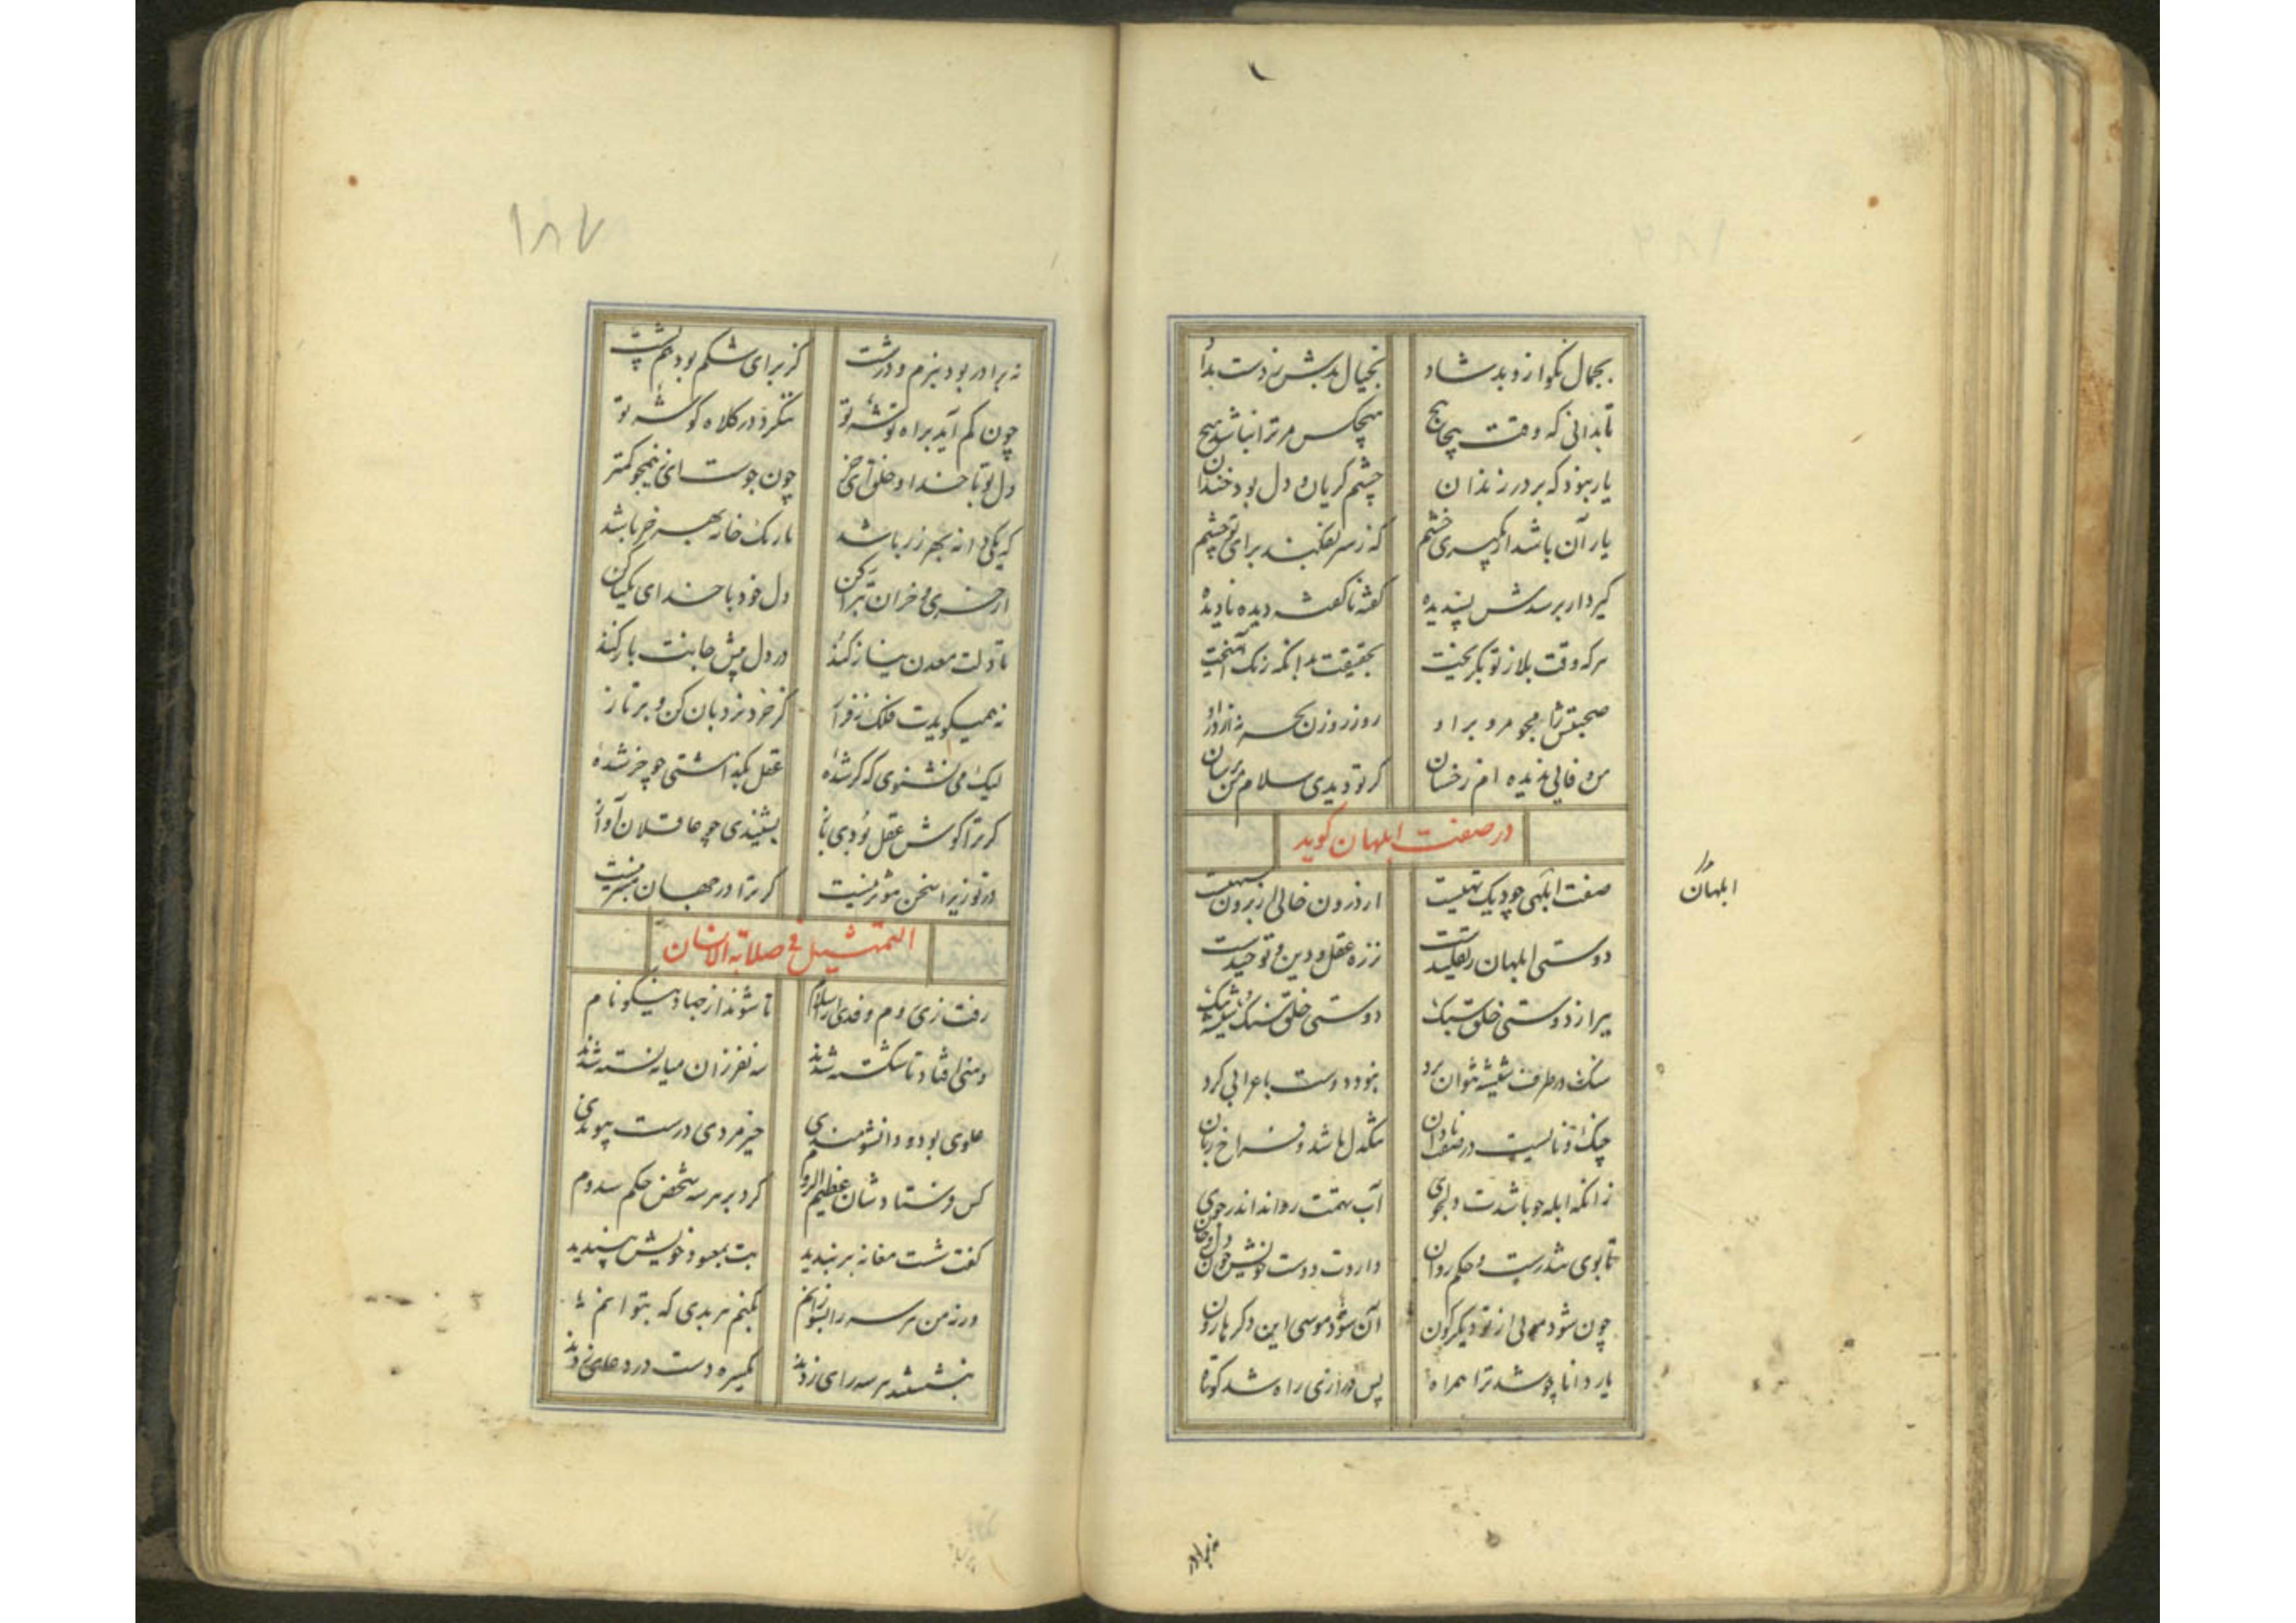 بجمال نکو ازو بد شاد بخیال بدش ز دست بداد
تابدانی که وقت پیچاپیچ هیچکس مر ترا نباشد هیچ
یار نبود که بر در زندان چشم گریان و دل بود خندان
یار آن باشد ار بگیری خشم که ز سر نفکند برای تو چشم
گیر دار برسدش پسندیده گفته ناگفته دیده نادیده
هرکه وقت بلا ز تو بگریخت بحقیقت بدانکه رنگ آمیخت
صحبتش را مجو مرو بر او
من وفایی ندیده ام ز خسان گر تو دیدی سلام من برسان
در صفت ابلهان گوید
ابلهان را
صفت ابلهی چو دیک تهیست از درون خالی از برون سیهست
دوستی ابلهان ز تقلیدست نز ره عقل و دین و توحیدست
ببر از دوستی خلق سبک دوستی خلق سنک و شیشه تنک
سنک در طرف شیشه نتوان برد نبود دوست باعرابی کرد
زانکه ابله چو باشدت دلجوی آب همتت رواند اندر جوی
تا بوی تندرست و حکم روان داردت دوست خویش چون دل و جان
چون شود حولی از تو دیگرگون آن شود موسی این دگر هارون
یار دانا چو شد ترا همراه پس درازی راه شد کوتاه
نه برادر
۱۸۷
نه برادر بود بنرم و درشت کز برای شکم بود هم پشت
چون کم آید براه توشه تو ننگرد در کلاه گوشه تو
دل تو تا خدا و خلق ای خر چون جوست ای ز نیم جو کمتر
که یکی دانه بهر زر باشد بارک خانه بهر خر باشد
از خری و خران تبرا کن دل خود با خدای یکتا کن
تا دلت معدن نیاز کند در دل پیش جانت باز کند
نه همیگویدت فلک ز فراز کز خرد نردبان کن و بر تاز
لیک می نشنوی که کر شدهٔ عقل بگذاشتی چو خر شدهٔ
گر ترا گوش عقل بودی باز بشنیدی چو عاقلان آواز
در تو زیرا سخن مؤثر نیست گر ترا در جهان میسر نیست
التمثیل فی صلابة الانسان
رفت زی روم وفدی از اسلام تا شوند از جهاد نیکو نام
وهنی افتاد تا شکسته شدند سه نفر زان میانه بسته شدند
علوی بود و دانشمندی حیز مردی درست پیوندی
کس فرستادشان عظیم الروم کرد بر هر سه شخص حکم سدوم
گفت شست مغانه بربندید بت بمعبود خویش بپسندید
ورنه من هر سه را بسوزانم بکنم هر بدی که بتوانم
بنشستند هر سه رای زدند یکسره دست در دعای زدند